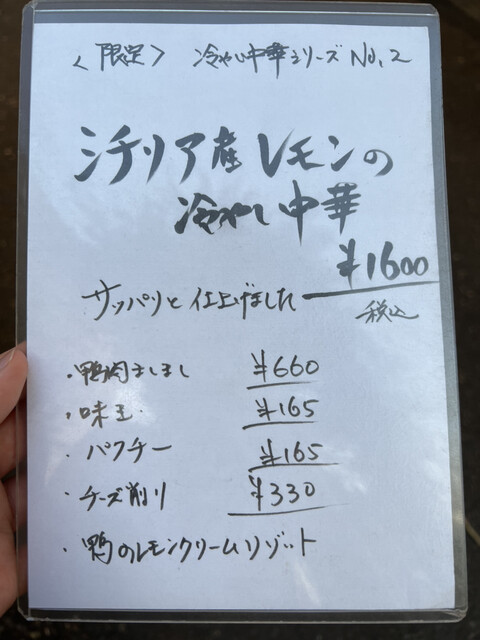 ＜限定＞ 冷やし中華シリーズ No.2
シチリア産レモンの
冷やし中華
¥1600
サッパリと仕上げました
税込
・鴨肉ましまし ¥660
・味玉 ¥165
・パクチー ¥165
・チーズ削り ¥330
・鴨のレモンクリームリゾット